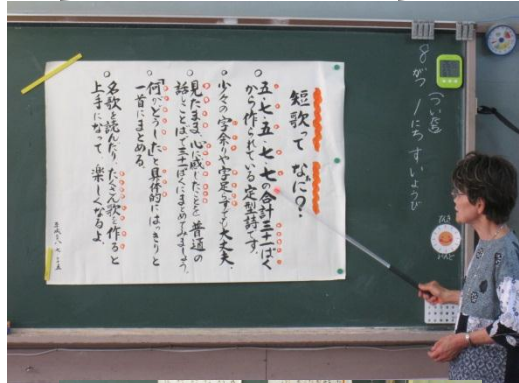 短歌って なぁに？
五・七・五・七・七の合計三十一ぱく
から作られている定型詩です。
少々の字余りや字足らずでも大丈夫。
見たまま、心に感じたことを普通の
話しことばで三十一ぱくにまとめてみましょう。
「何が、どうした」と具体的にはっきりと
一首にまとめる。
名歌を読んだり、たくさん歌を作ると
上手になって、楽しくなるよ。
8がつ
(ついたち)
1にち すいようび